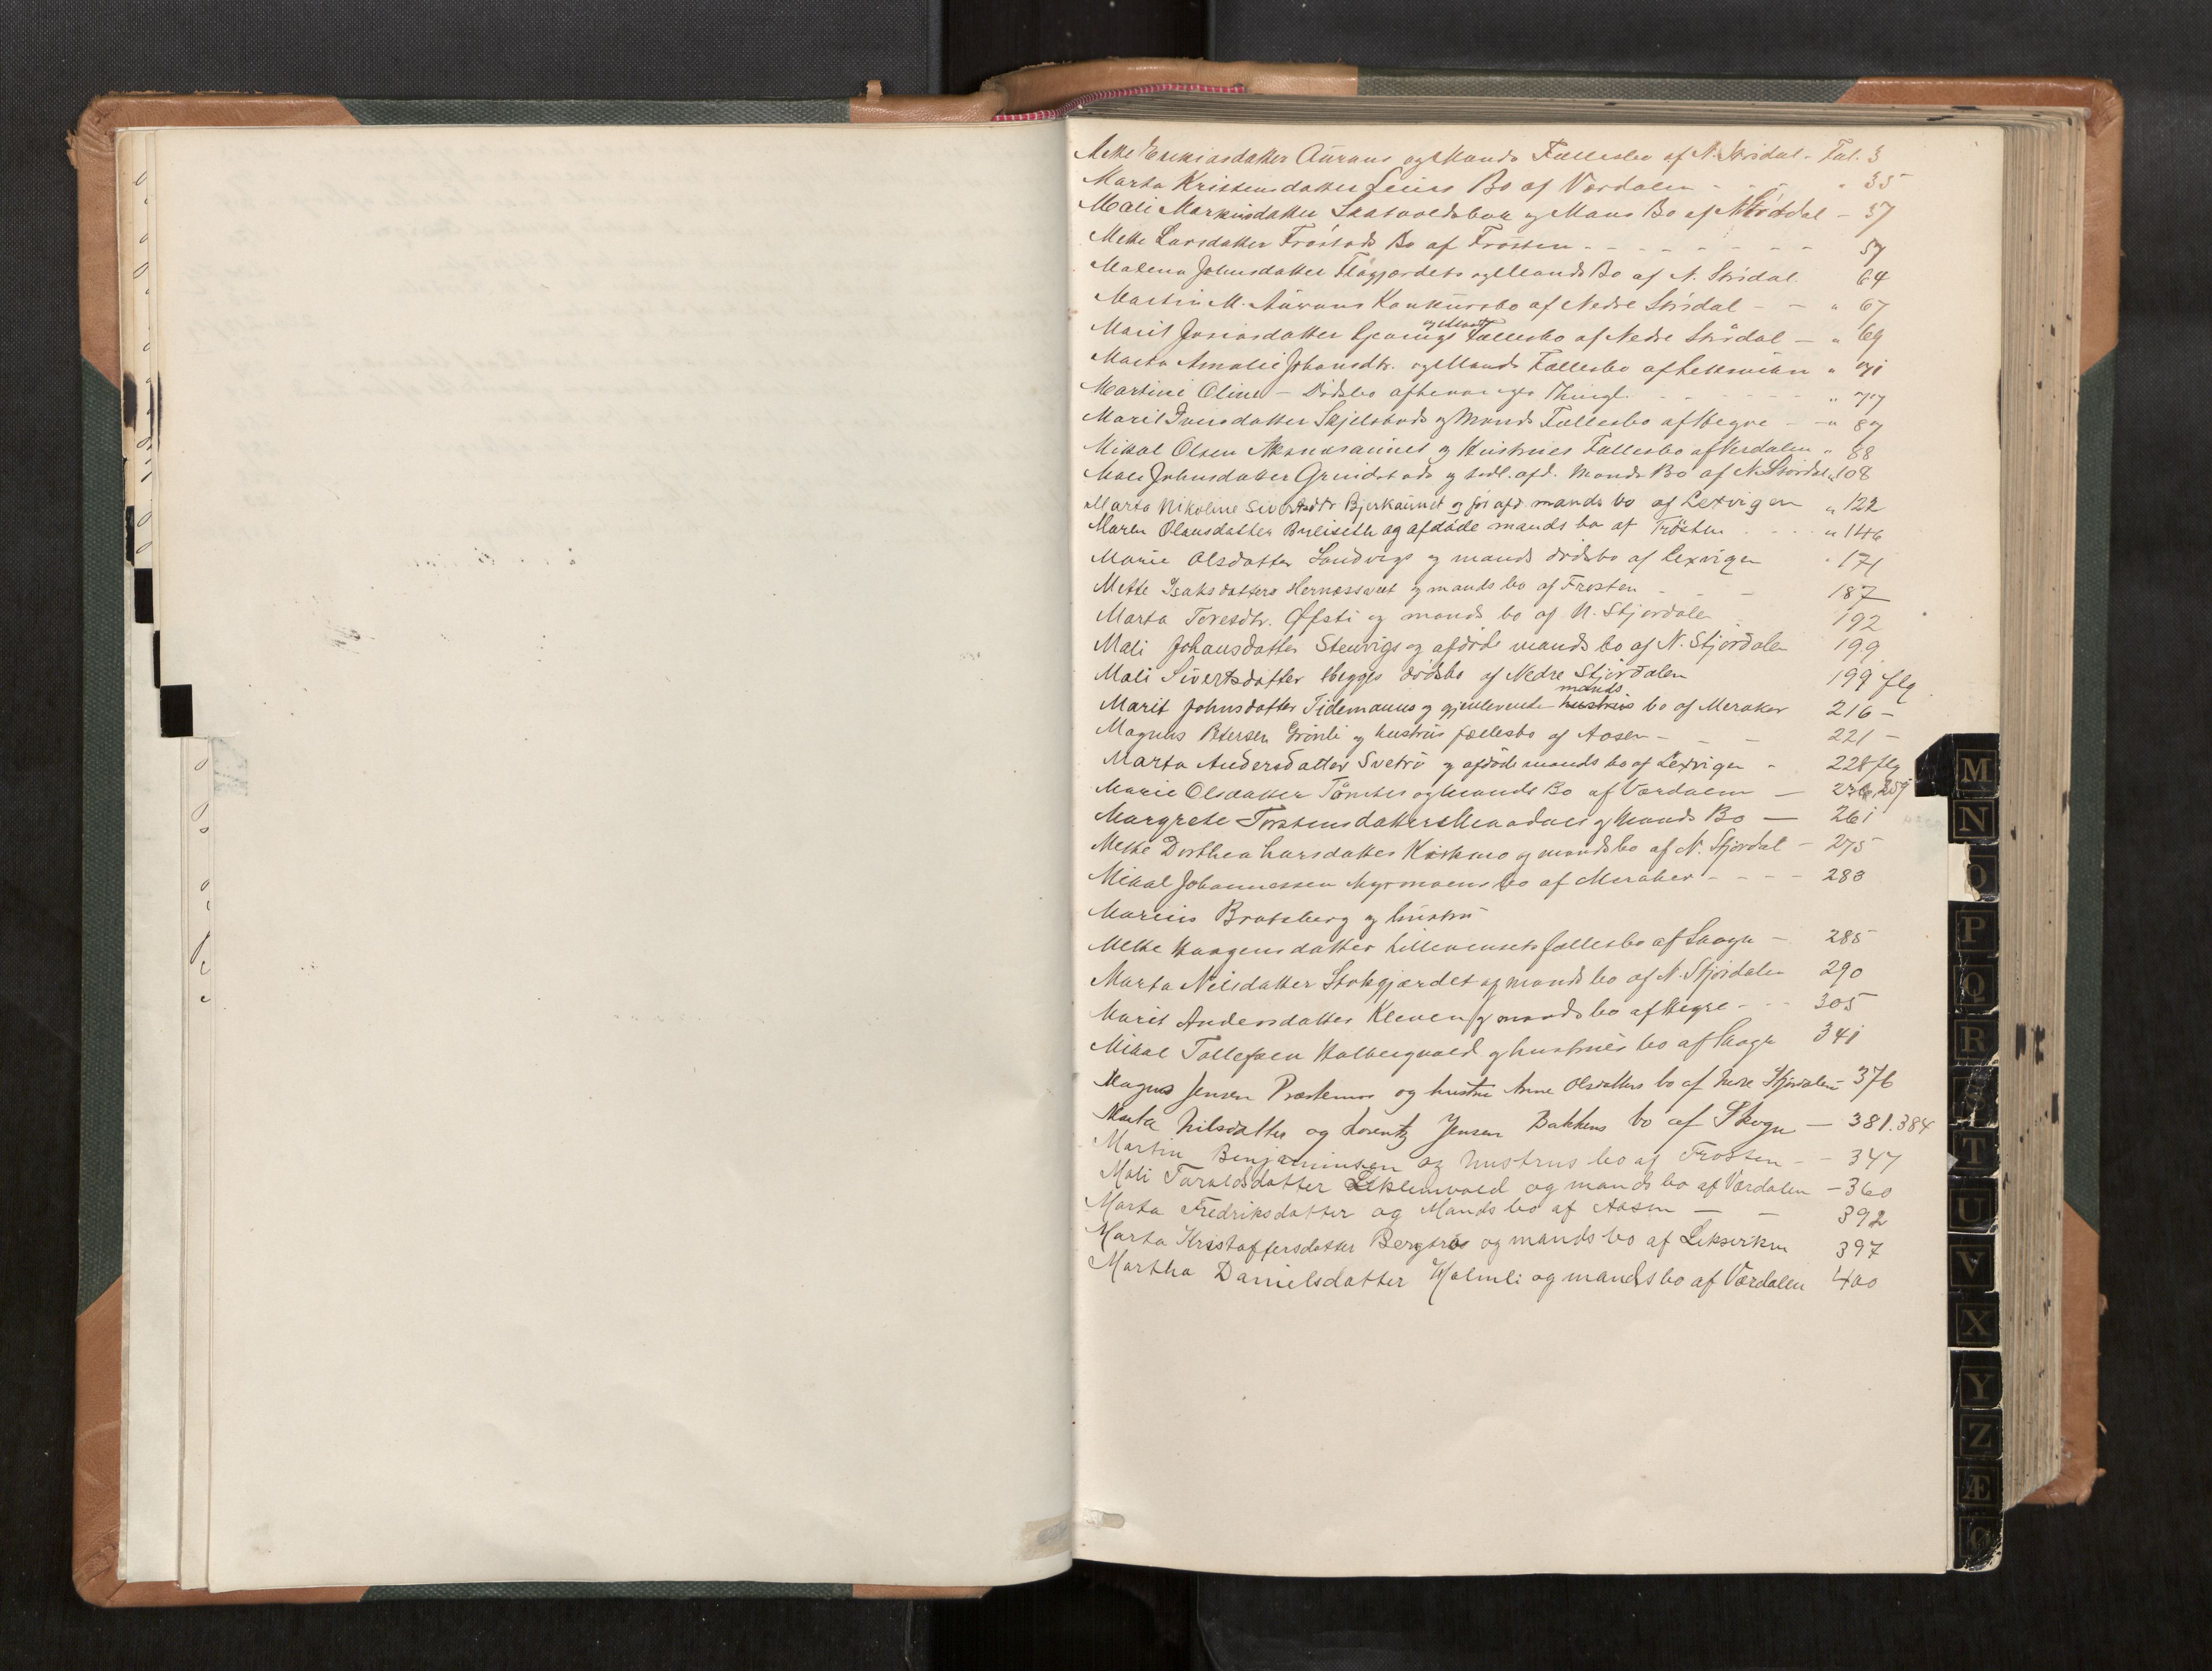 Mette Esekiasdatter Auruns og Mands Fællesbo af N. Stordal. Fol. 3
Marta Kristensdatter Leirs Bo af Værdalen - - " 35
Mali Markusdatter og Mans Bo af N Stördal - 37
Mette Larsdatter Fröstads Bo af Frösten - - - - - - - - 57
Malena Johnsdatter Flögjerdets og Mands Bo af N. Strdal. 64
Martin M. Aurans Konkursbo af Nedre Strdal - - " 67
Marit Joniasdatter og Mands Fællesbo af Nedre Stördal - " 69
Marta Amalie Johansdtr. og Mands Fællesbo af Leksviken " 71
Martine Oline - Dödsbo Thingl. - - - - - - " 77
Marit Iversdatter Skjelstads og Mands Fællesbo af Hegre - " 87
Mikal Olsen og Hustrues Fællesbo af Verdalen " 88
Mali Johnsdatter Grindstads og tidl. afd. Mands Bo af N. Stördal " 108
Marta Nikoline Sivertsdtr Bjerkaunet og før afd mands bo af Lexvigen " 122
Maren Olausdatter Buliseth og afdøde mands bo af Frösten - - - " 146
Marie Olsdatter Sandvigs og mands dødsbo af Lexvigen " 171
Mette Isaksdatters Hernæssveet og mands bo af Frosten - - - 187
Marta Toresdtr. Øfsti og mands bo af N. Stjordalen 192
Mali Johansdatter Stenvigs og afdøde mands bo af N. Stjørdalen 199
Mali Sivertsdatter Hegges dødsbo af Nedre Stjørdalen 199 flg
mands
Marit Johnsdatter Tidemanns og gjenlevende hustrus bo af Meraker 216 -
Magnus Petersen Grönli og hustrus fællesbo af Aasen - - - 221 -
Marta Andersdatter Svetrö og afdøde mands bo af Lexvigen - 228 flg
Marie Olsdatter og Mands Bo af Værdalen - 236, 259
Margrete Torstensdatters og Mands Bo - 261
Mette Dorthea Larsdatter Kirkmo og mands bo af N. Stjørdal - 275
Mikal Johannessen Myrmoens bo af Meraker - - - - 283
Marius Bratsberg og hustru
Mette Haagensdatter fællesbo af Skogn - 285
Marta Nilsdatter Stokgjærdet og mands bo af N. Stjördalen 290
Marit Andersdatter Kleven og mands bo af Hegre - - - 305
Mikal Tollefsen og hustrues bo af Skogn 341
Magnus Jensen Præstemo og hustru Anne Olsdatters bo af Nedre Stjørdalen - 376
Marta Nilsdatter og Lorentz Jensen Bakkens bo af Skogn - 381.384
Martin Benjaminsen og hustrus bo af Frosten - - 347
Mali Taraldsdatter Leklemvald og mands bo af Værdalen - 360
Marta Fredriksdatter og Mands bo af Aasen - - 392
Marta Kristoffersdatter Bergtrös og mands bo af Leksviken 397
Martha Danielsdatter Halmli og mands bo af Værdalen 400
M
N
O
P
Q
R
S
T
U
V
X
Y
Z
Æ
Ø